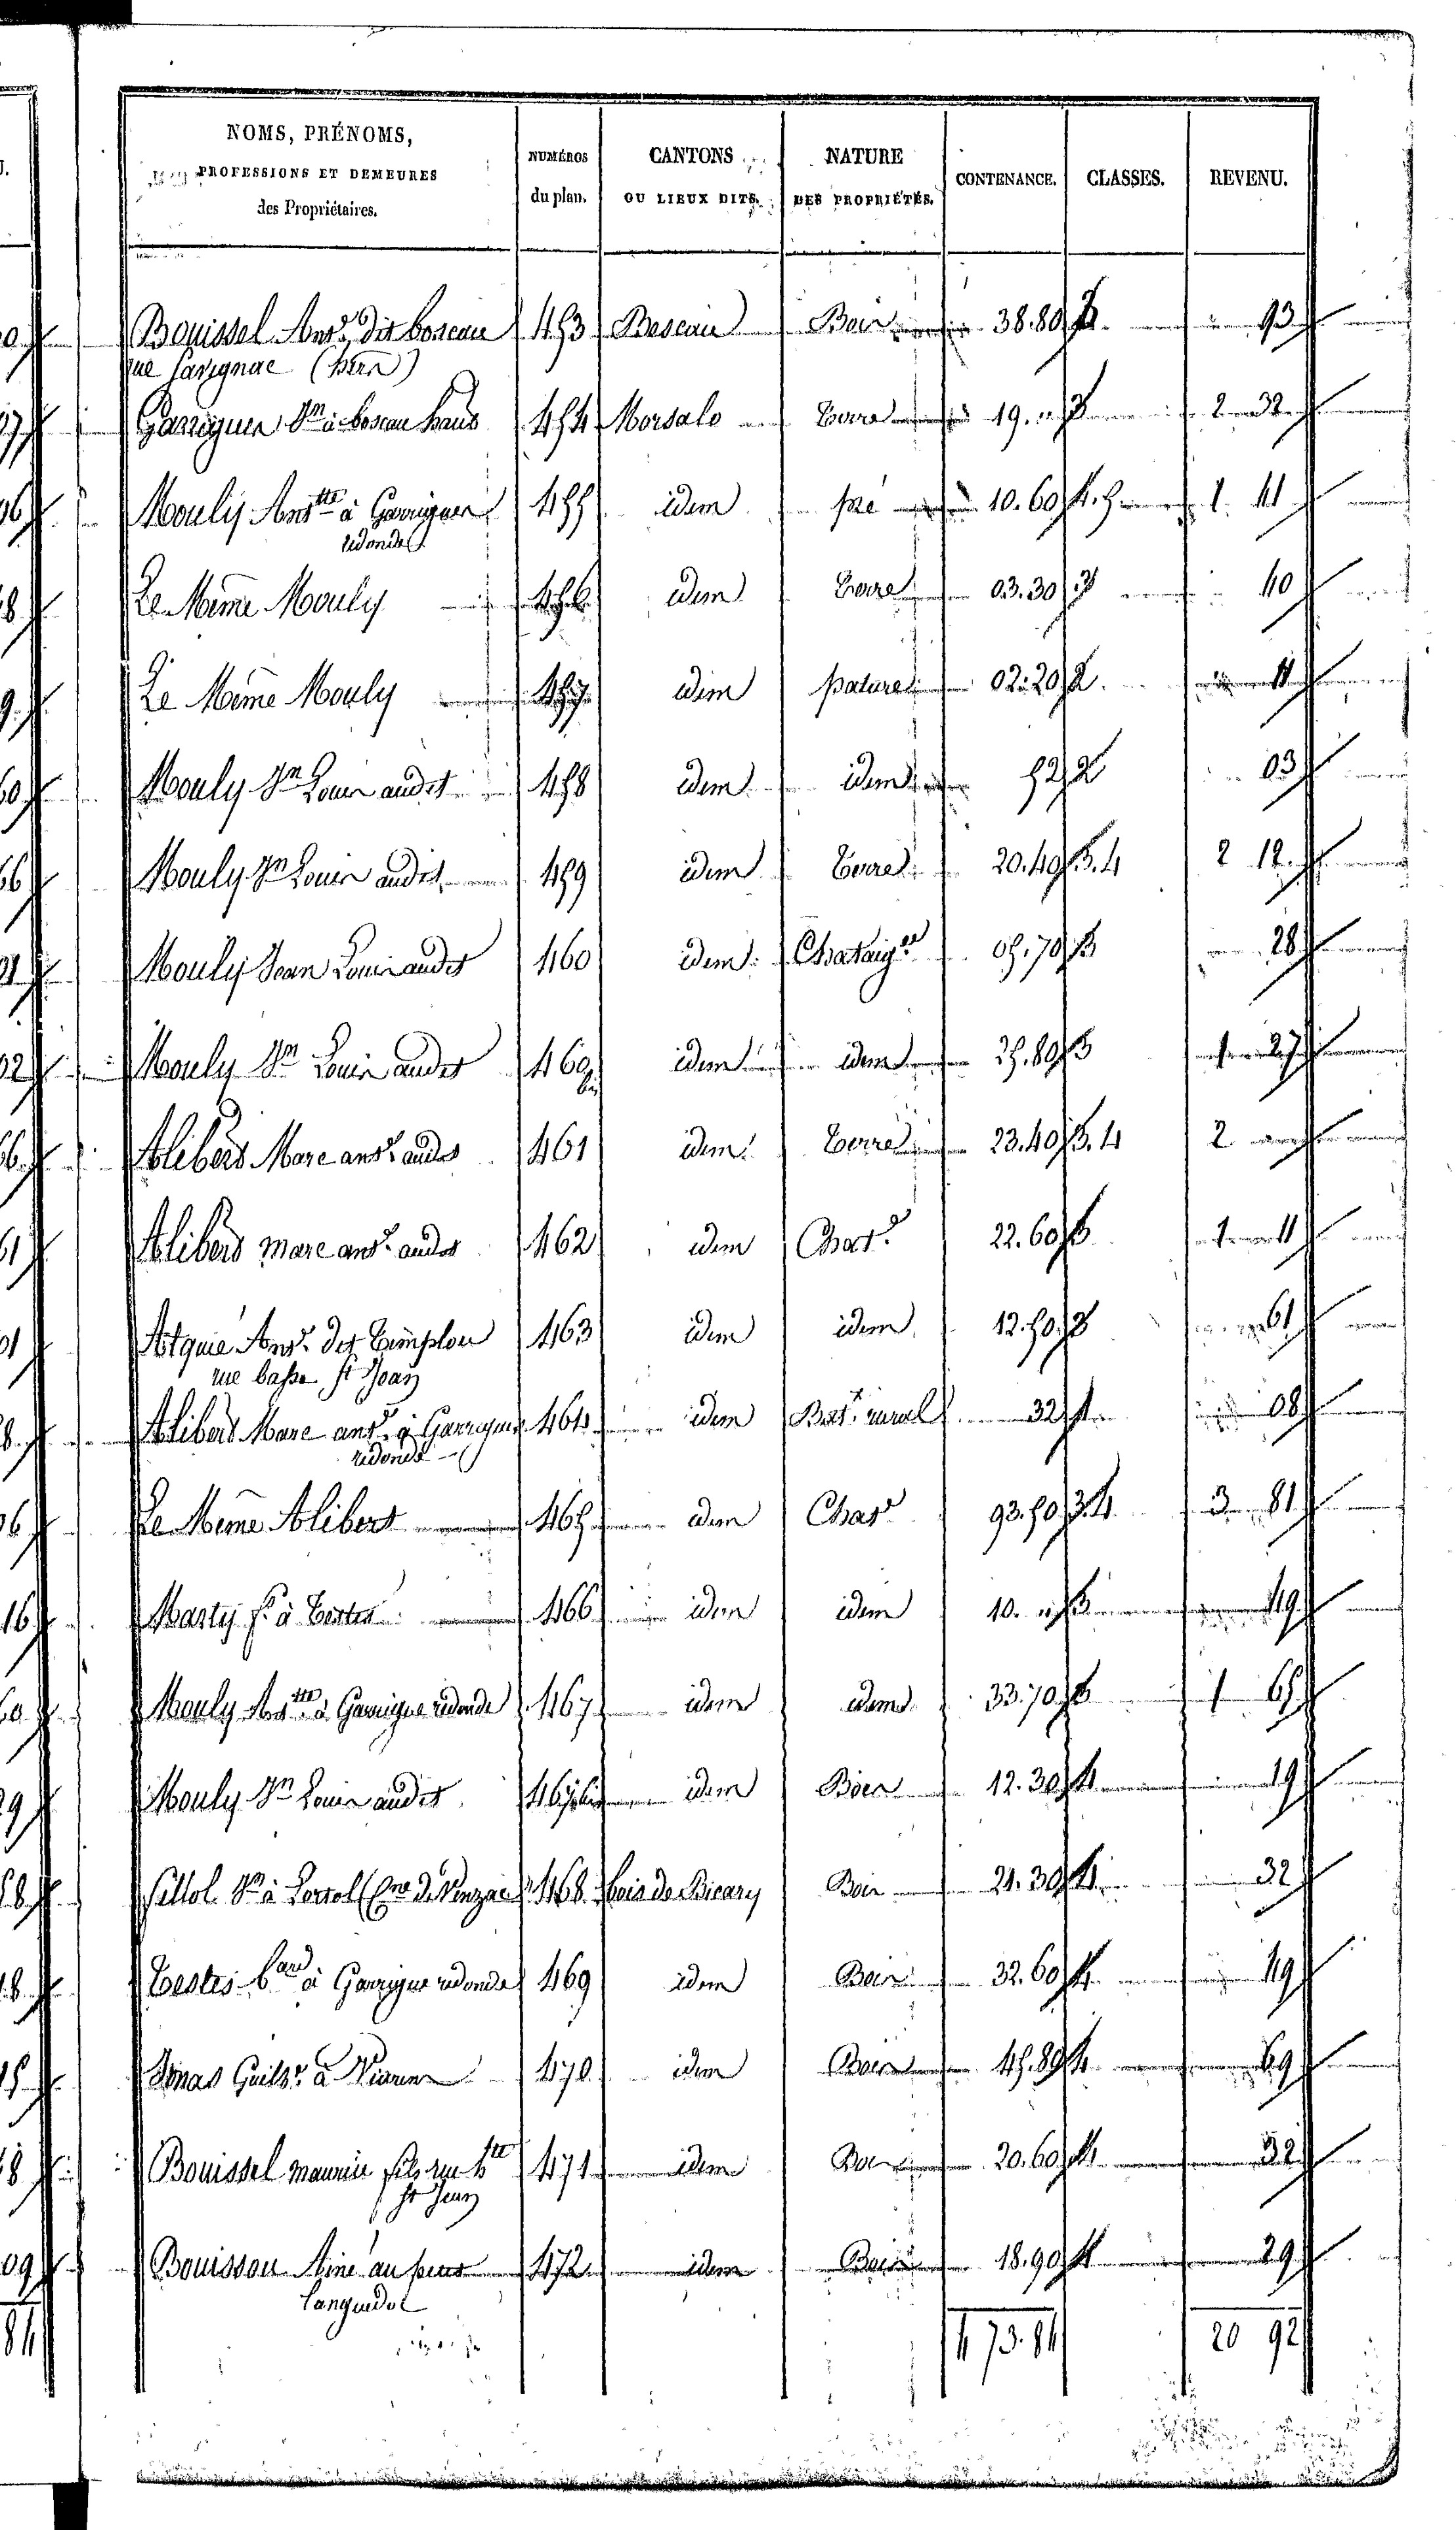 NOMS, PRÉNOMS, PROFESSIONS ET DEMEURES des Propriétaires. NUMÉROS du plan. CANTONS OU LIEUX DITS. NATURE DES PROPRIÉTÉS. CONTENANCE. CLASSES. REVENU.
Bouissel Ant.e dit boscau 453 Boscau Bois 38.80 93
rue Savignac
Garrigues Jn à boscau haut 454 Morsalo Terre 19. " 3 2 32
Mouly Anttte à Garrigues 455 idem pré 10.60 4.5 1 41
redonde
Le Même Mouly 456 idem Terre 03.30 3 40
Le Même Mouly 457 idem pature 02.20 2 11
Mouly Jn Louis audit 458 idem idem 52 2 03
Mouly Jn Louis audit 459 idem Terre 20.40 3.4 2 12
Mouly Jean Louis audit 460 idem Chataig.re 05.70 3 28
Mouly Jn Louis audit 460 bis idem idem 25.80 3 1 27
Alibert Marc ant.e audit 461 idem Terre 23.40 3.4 2
Alibert marc ant.e audit 462 idem Chat.e 22.60 3 1 11
Alquié Ant.e dit Templou 463 idem idem 12.50 3 61
rue basse St Jean
Alibert Marc ant.e à Garrigue 464 idem Bat.t rural 32 1 08
redonde
Le Même Alibert 465 idem Chat.e 93.50 3.4 3 81
Marty f.s à Testes 466 idem idem 10. " 3 49
Mouly Anttte à Garrigue redonde 467 idem idem 33.70 3 1 65
Mouly Jn Louis audit 467 bis idem Bois 12.30 4 19
Fillol Jn à (Cne de Vinzac) 468 bois de Bicary Bois 21.30 4 32
Testes bard à Garrigue redonde 469 idem Bois 32.60 4 49
à 470 idem Bois 45.80 4 69
Bouissel maurice fils rue hte 471 idem Bois 20.60 4 32
St Jean
Bouissou Aîné au 472 idem Bois 18.90 4 29
Languedoc
4 73.84 20 92